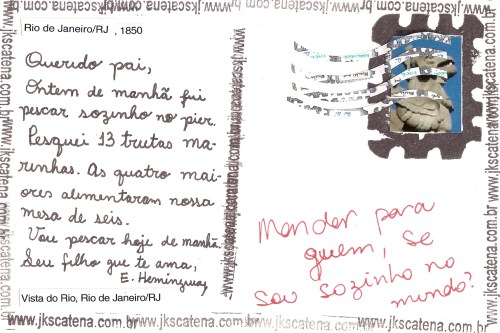 www.jkscatena.com.br www.jkscatena.com.br
Rio de Janeiro/RJ , 1850
Querido pai,
Ontem de manhã fui
pescar sozinho no pier.
Pesquei 13 trutas ma-
rinhas. As quatro mai-
ores alimentaram nossa
mesa de seis.
Vou pescar hoje de manhã.
Seu filho que te ama,
E. Hemingway
Vista do Rio, Rio de Janeiro/RJ
Mandar para
quem, se
sou sozinho no
mundo?
www.jkscatena.com.br
www.jkscatena.com.br
www.jkscatena.com.br